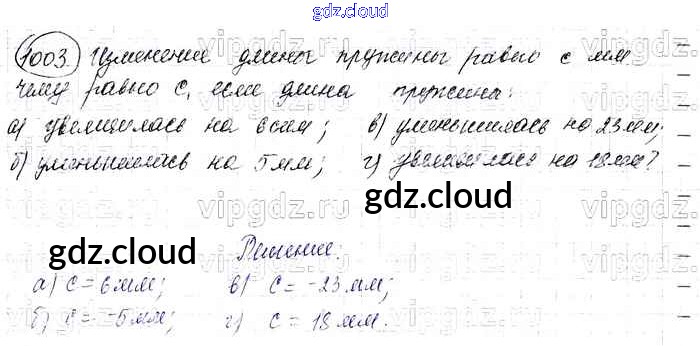 gdz.cloud
1003. Изменение длины пружины равно с мм
чему равно с, если длина пружина:
а) увеличилась на 6 мм; в) уменьшилась на 23 мм;
б) уменьшилась на 5 мм; г) увеличилась на 18 мм?
gdz.cloud
gdz.cloud
Решение:
а) с = 6 мм; в) с = -23 мм;
б) с = -5 мм; г) с = 18 мм.
vipgdz.ru